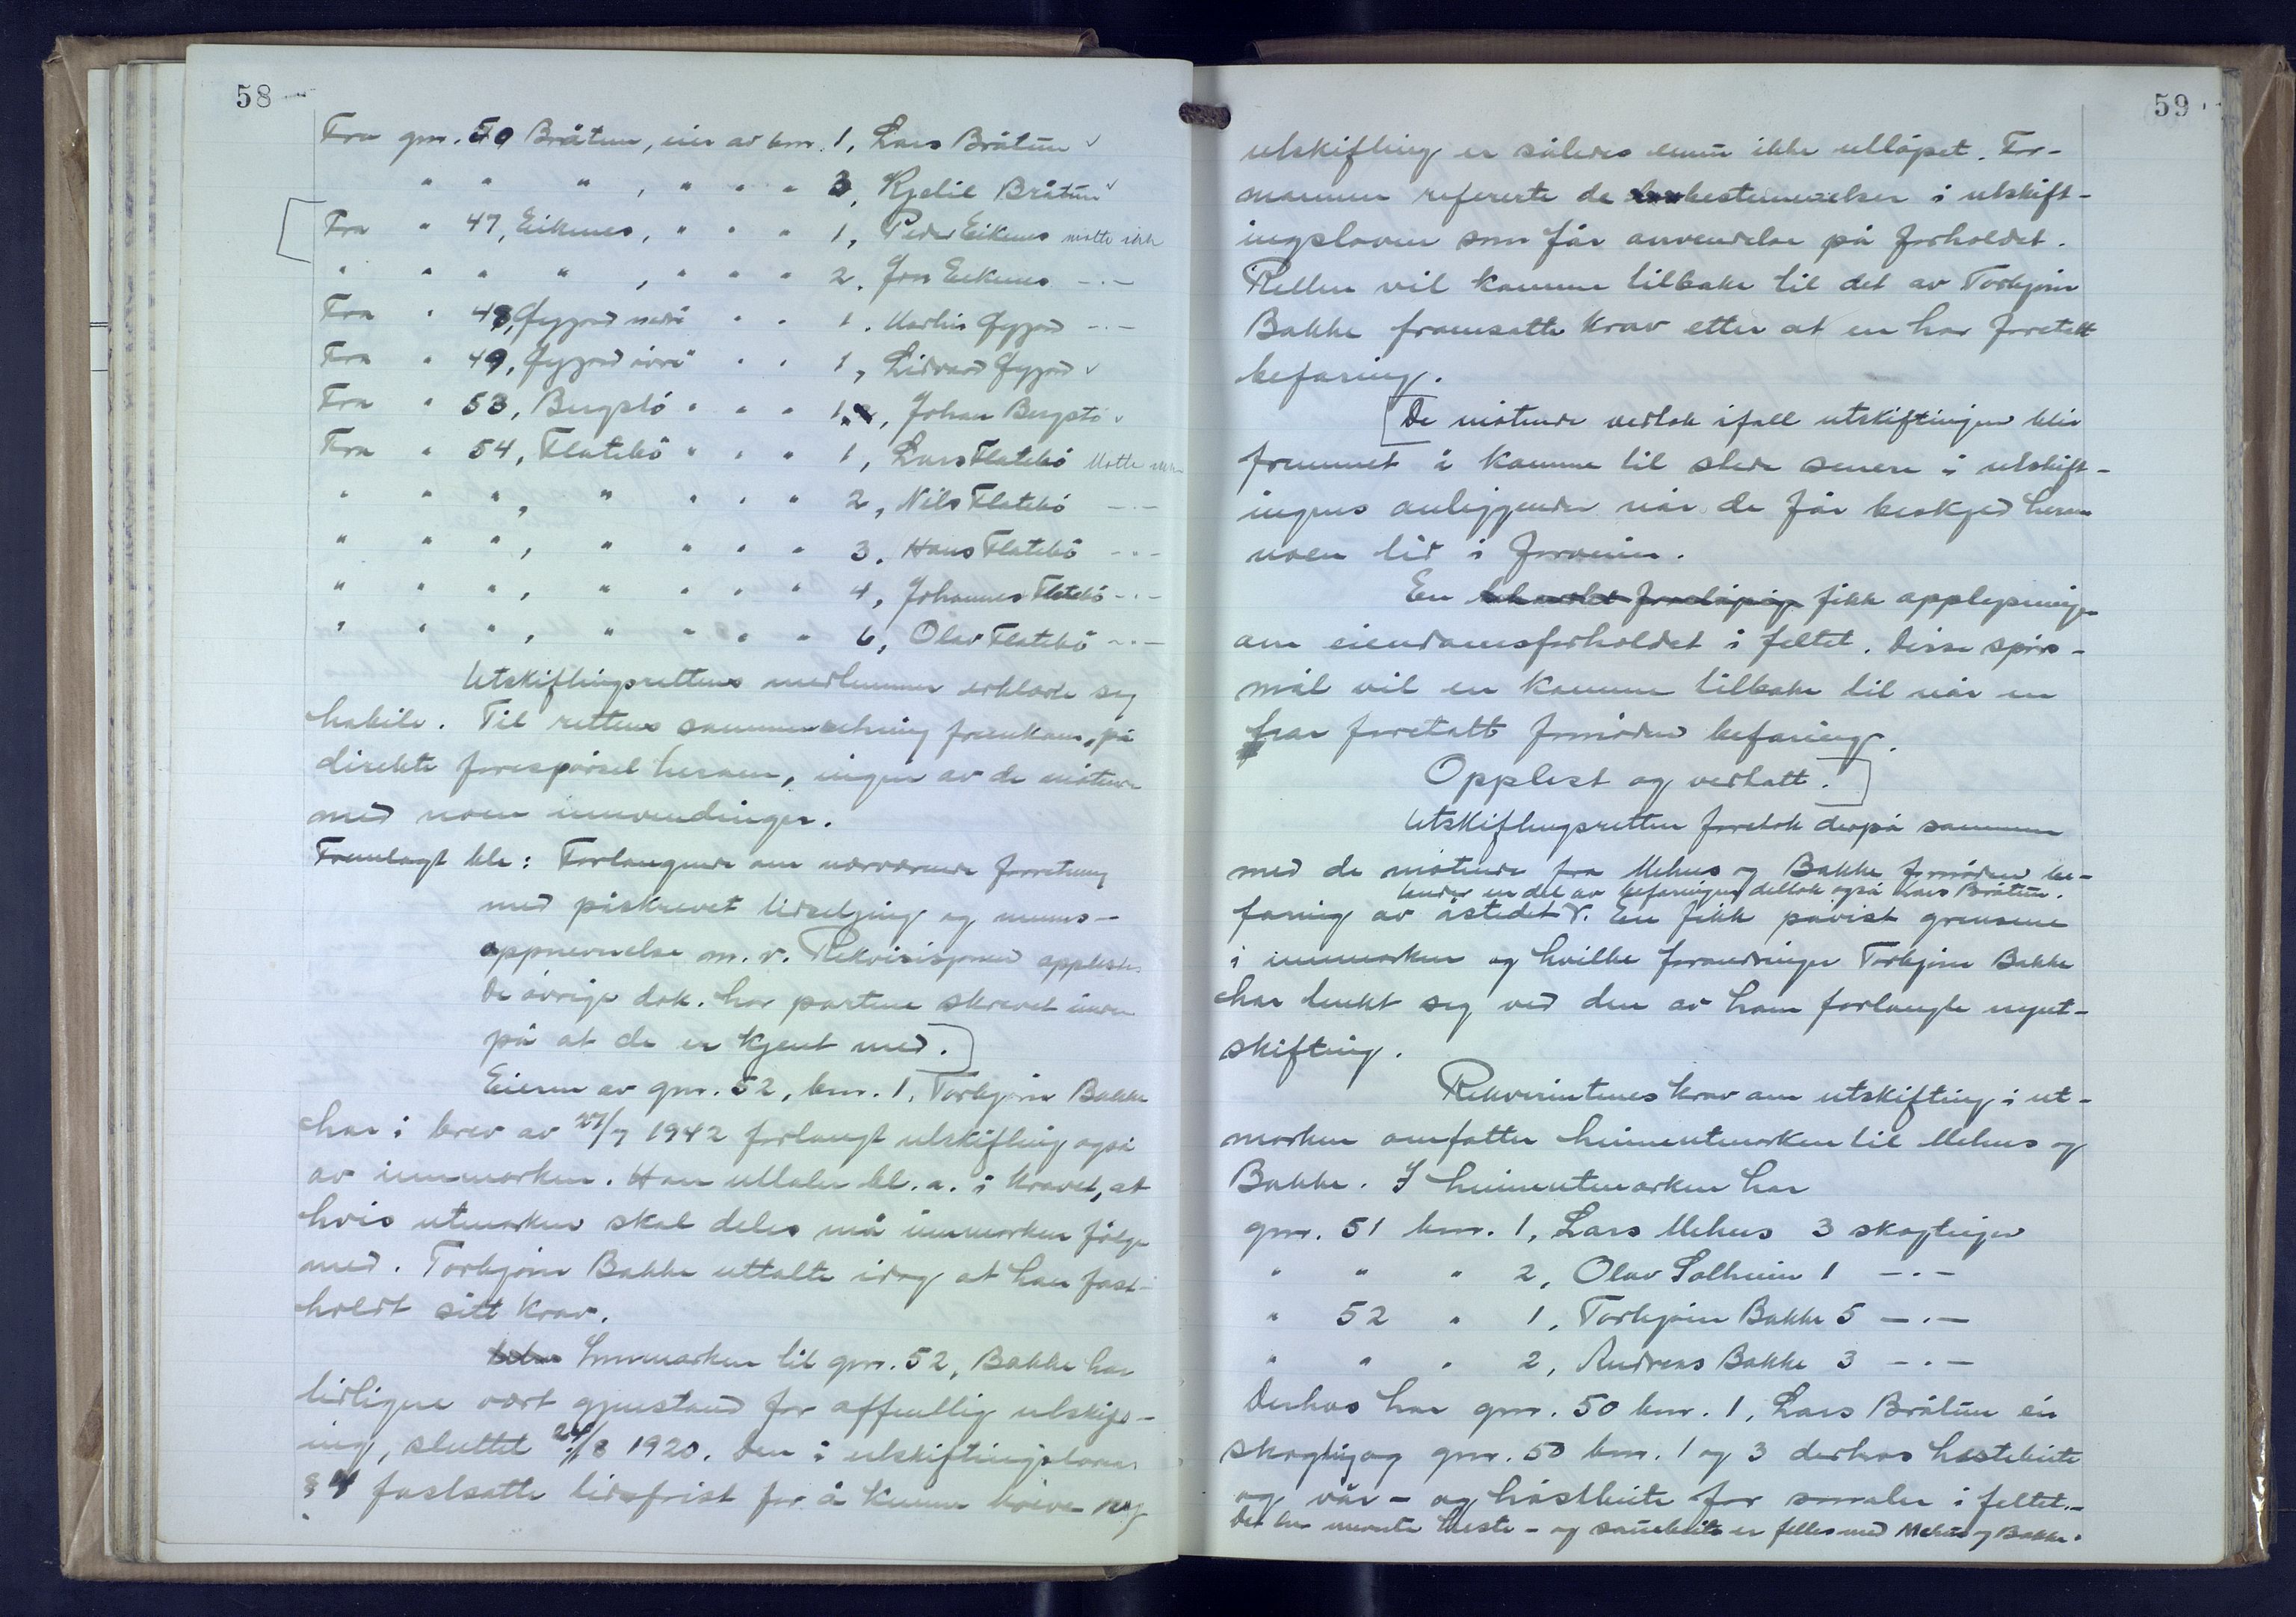 58
Fra gnr. 50 Bråtun, eier av bnr. 1, Lars Bråtun ✓
" " " , " " " 3, Kjetil Bråtun ✓
Fra " 47, Eiknes, " " " 1, Peder Eiknes møtte ikke
" " " " , " " " 2. Jon Eiknes -.-
Fra " 48, nedre " " 1. Martin -.-
Fra " 49, øvre " " 1, Edvard ✓
Fra " 53, Bergstø " " " 1, Johan Bergstø ✓
Fra " 54, Flatebø " " " 1, Lars Flatebø Møtte ikke
" " " , " " " " 2, Nils Flatebø -.-
" " " , " " " " 3. Hans Flatebø -.-
" " " , " " " " 4, Johannes Flatebø -.-
" " " , " " " " 6, Olav Flatebø -.-
Utskiftingsrettens medlemmer erklærte seg
habile. Til rettens sammensetning fremkom, på
direkte forespørsel herom, ingen av de møtende
med noen innvendinger.
Fremlagt ble: Forlangende om nærværende forretning
med påskrevet berammelse og menns-
oppnevnelse m.v. Rekvisisjonen opplestes
De øvrige dok. har partene skrevet under
på at de er kjent med.]
Eieren av gnr. 52, bnr. 1, Torbjørn Bakke
har i brev av 27/7 1942 forlangt utskifting også
av innmarken. Han uttaler bl.a. i kravet, at
hvis utmarken skal deles må innmarken følge
med. Torbjørn Bakke uttalte idag at han fast-
holdt sitt krav.
Innmarken til gnr. 52, Bakke har
tidligere vært gjenstand for offentlig utskift-
ing, sluttet 24/8 1920. Den i utskiftingsloven
§ 4 fastsatte tidsfrist for å kunne kreve ny
59
utskifting er således ennu ikke utløpet. For-
mannen refererte de bestemmelser i utskift-
ingsloven som får anvendelse på forholdet.
Retten vil komme tilbake til det av Torbjørn
Bakke framsatte krav etter at en har foretatt
befaring.
[De møtende vedtok ifall utskiftingen blir
fremmet å komme til stede senere i utskift-
ingens anliggender når de får beskjed herom
noen tid i forveien.
En fikk opplysninger
om eiendomsforholdet i feltet. Disse spørs-
mål vil en komme tilbake til når en
har foretatt fornøden befaring.
Opplest og vedtatt.]
Utskiftingsretten foretok derpå sammen
med de møtende fra Mehus og Bakke fornøden be-
Under en del av befaringen deltok også Lars Bråtun.
faring av åstedet. En fikk påvist grensene
i innmarken og hvilke forandringer Torbjørn Bakke
har tenkt seg ved den av ham forlangte nyut-
skifting.
Rekvirentenes krav om utskifting i ut-
marken omfatter heimeutmarken til Mehus og
Bakke. I heimeutmarken har
gnr. 51 bnr. 1, Lars Mehus 3 skogteiger
" " " 2, Olav Solheim 1 -.-
" 52 " 1, Torbjørn Bakke 5 -.-
" " " 2, Andreas Bakke 3 -.-
Derhos har gnr. 50 bnr. 1, Lars Bråtun én
skogteig og gnr. 50 bnr. 1 og 3 derhos hestebeite
og vår- og høstbeite for smaler i feltet.-
Det her nevnte heste- og sauebeite er felles med Mehus og Bakke.